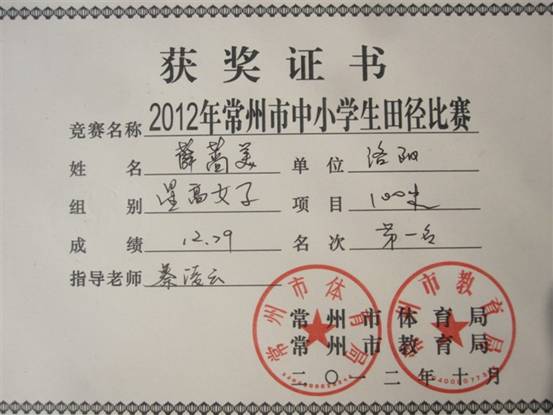 获奖证书
竞赛名称 2012年常州市中小学生田径比赛
姓名 薛茜美 单位 洛阳
组别 星高女子 项目 100米
成绩 12.79 名次 第一名
指导老师 秦语云
常州市体育局
常州市教育局
二〇一二年十月
常州市体育局
常州市教育局